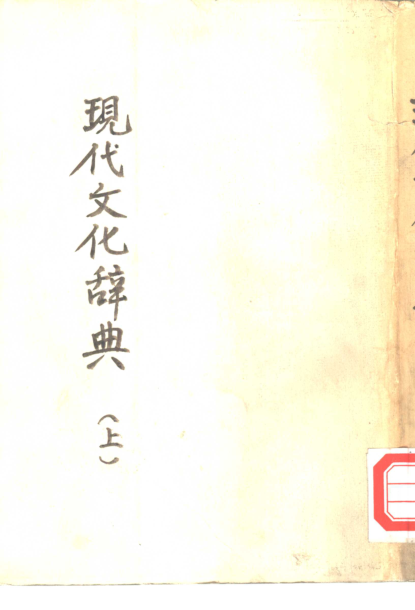 現代文化辞典
(上)